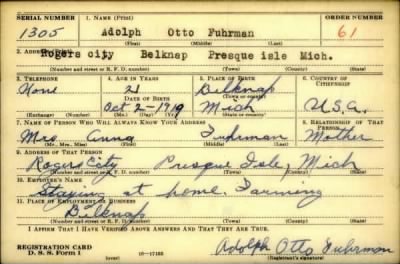 SERIAL NUMBER 1. NAME (Print) ORDER NUMBER
1305 Adolph Otto Fuhrman 61
(First) (Middle) (Last)
2. ADDRESS (Print)
Rogers city Belknap Presque isle Mich.
(Number and street or R. F. D. number) (Town) (County) (State)
3. TELEPHONE 4. AGE IN YEARS 5. PLACE OF BIRTH 6. COUNTRY OF CITIZENSHIP
None 21 Bilknap
DATE OF BIRTH (Town or county)
Oct 2-1919 Mich U.S.A.
(Exchange) (Number) (Mo.) (Day) (Yr.) (State or country)
7. NAME OF PERSON WHO WILL ALWAYS KNOW YOUR ADDRESS 8. RELATIONSHIP OF THAT PERSON
Mrs Anna Fuhrman Mother
(Mr., Mrs., Miss) (First) (Middle) (Last)
9. ADDRESS OF THAT PERSON
Rogers City Presque Isle, Mich
(Number and street or R. F. D. number) (Town) (County) (State)
10. EMPLOYER'S NAME
Staying at home. Farming
11. PLACE OF EMPLOYMENT OR BUSINESS
Bilknap
(Number and street or R. F. D. number) (Town) (County) (State)
I AFFIRM THAT I HAVE VERIFIED ABOVE ANSWERS AND THAT THEY ARE TRUE.
REGISTRATION CARD
D. S. S. Form 1 16-17105 Adolph Otto Fuhrman
(Registrant's signature)